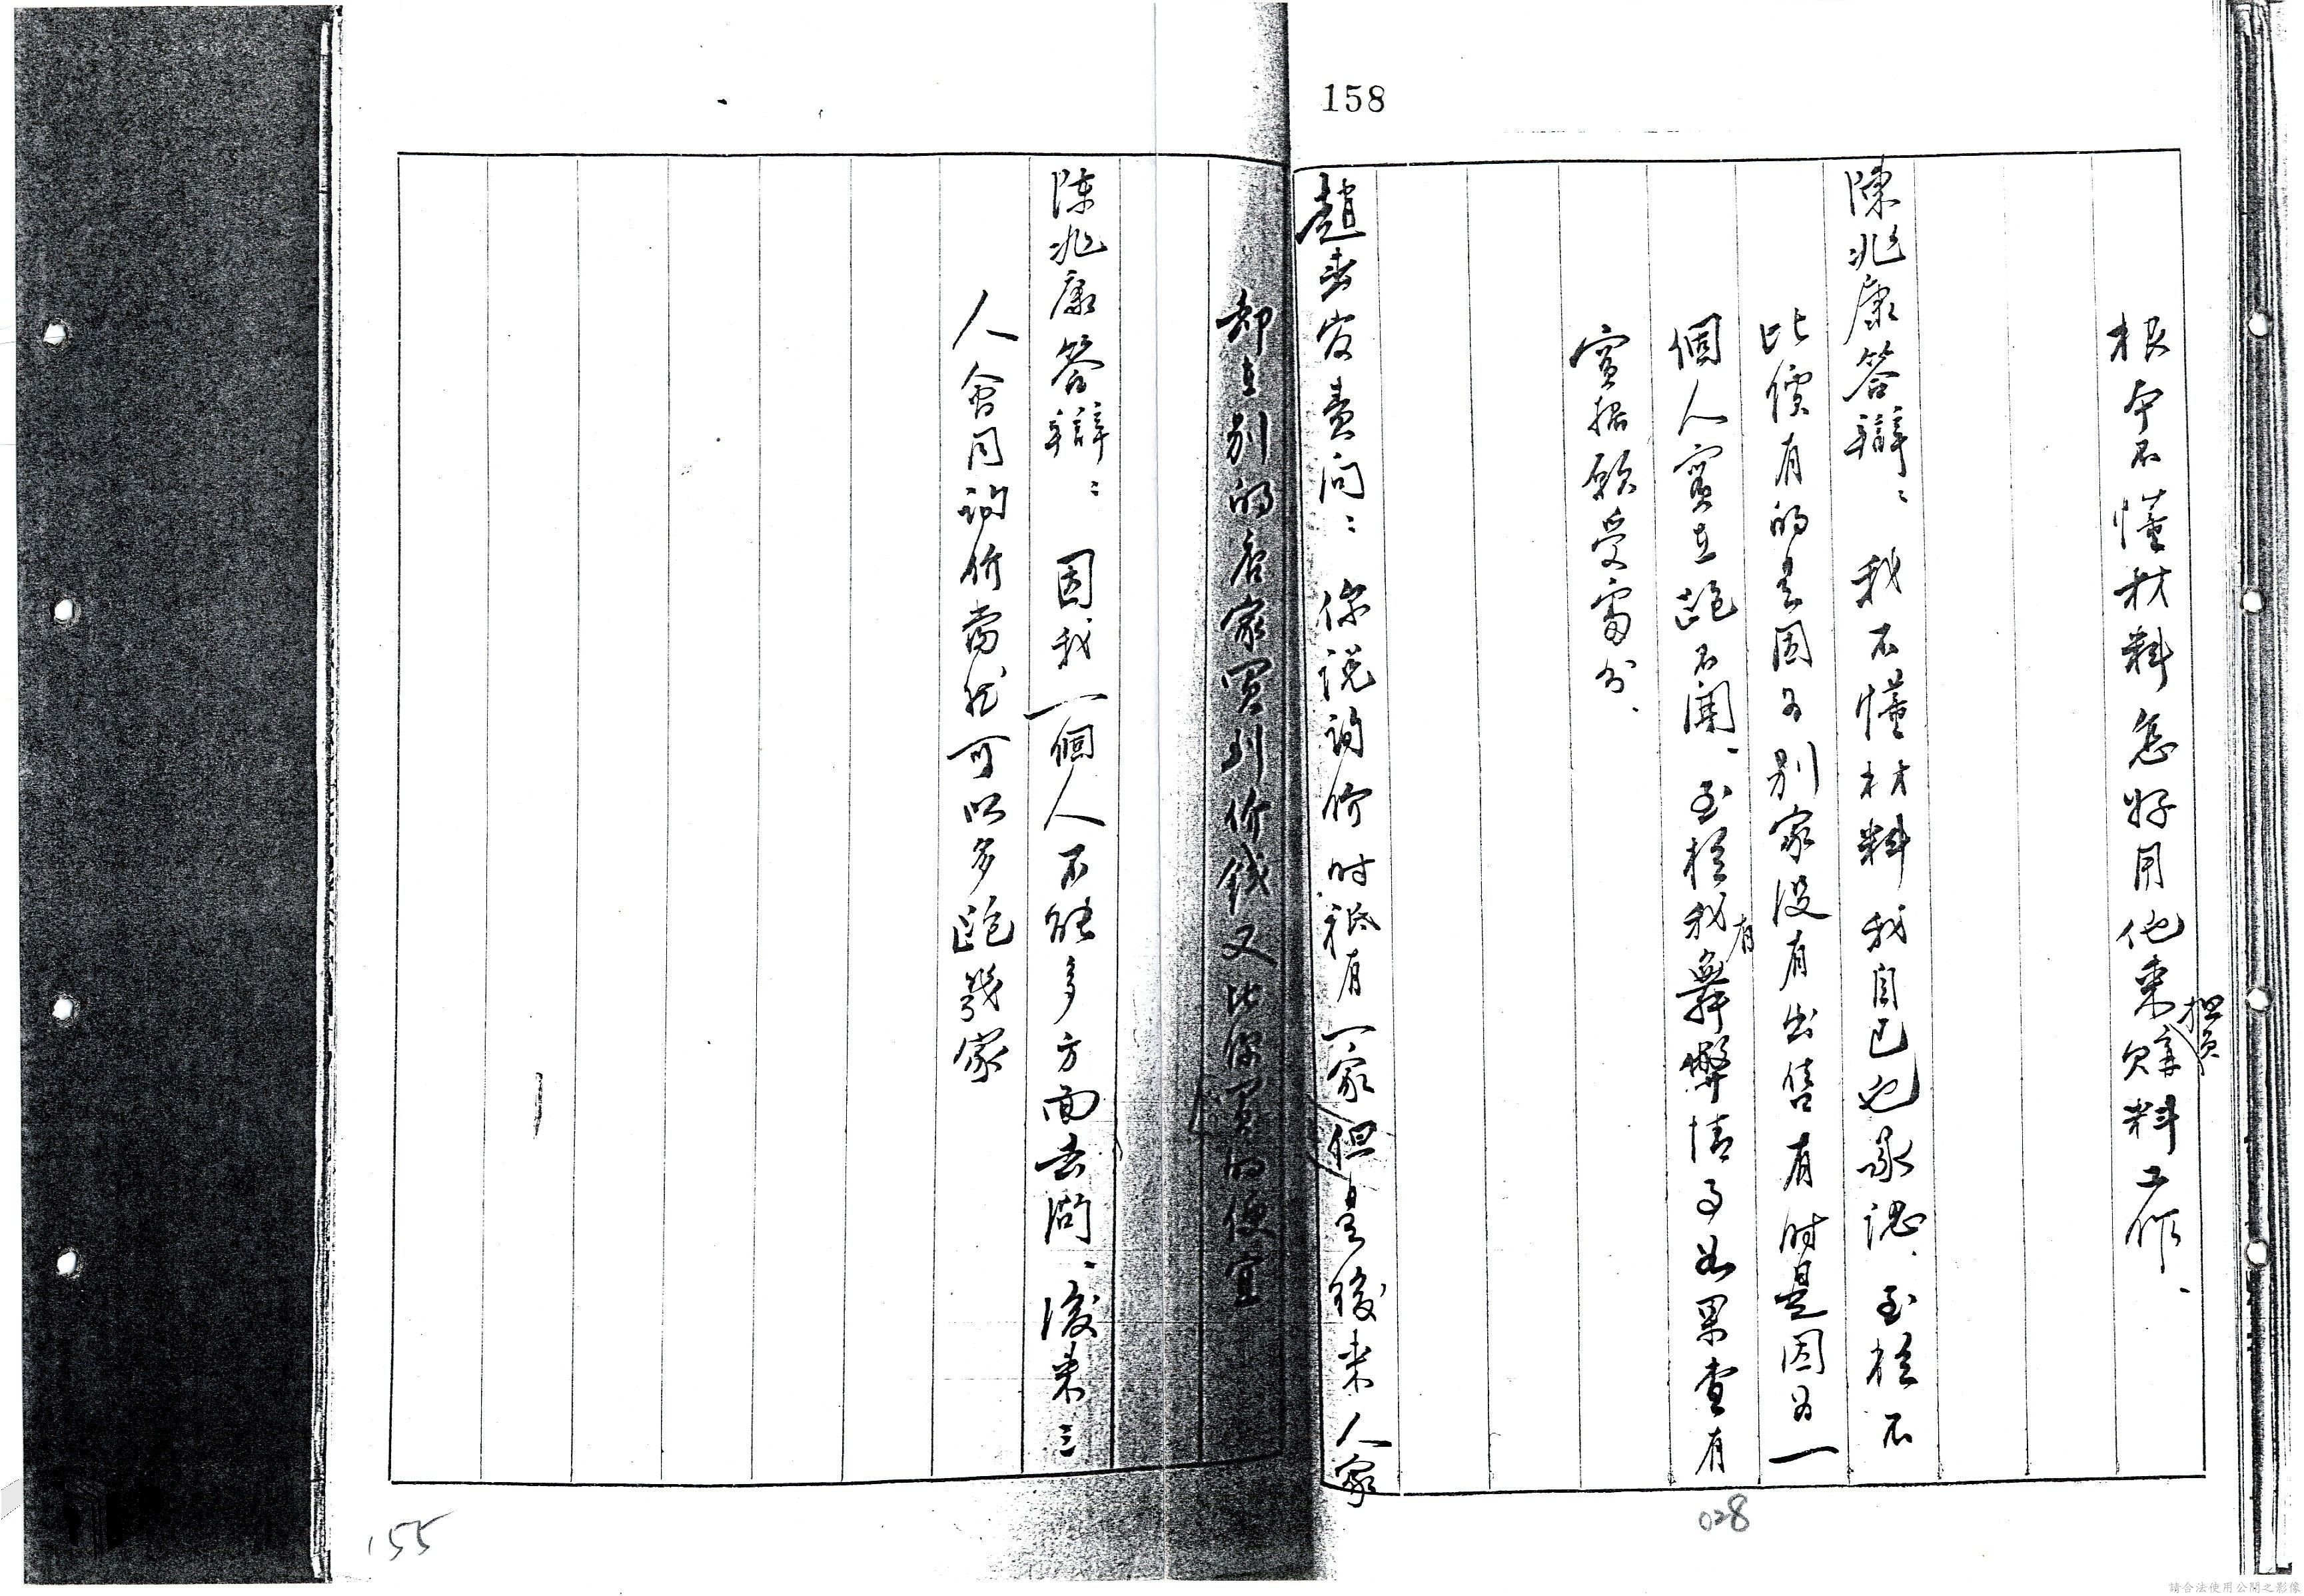 158
根本不懂材料怎好用他来担負購料工作、
陳兆康答辯：我不懂材料我自己也承認、至於不
比價有的是因为別家没有出售有时是因为一
個人实在跑不開、至於我有舞弊情事如果查有
实据願受處分、
趙春官責问：你説詢价时祗有一家但是後来人家
却在别的店家買到价钱又比你買的便宜
陈兆康答辯：因我一個人不能多方面去询、後来三
人会同詢价當然可以多跑幾家
155
028
請合法使用公開之影像